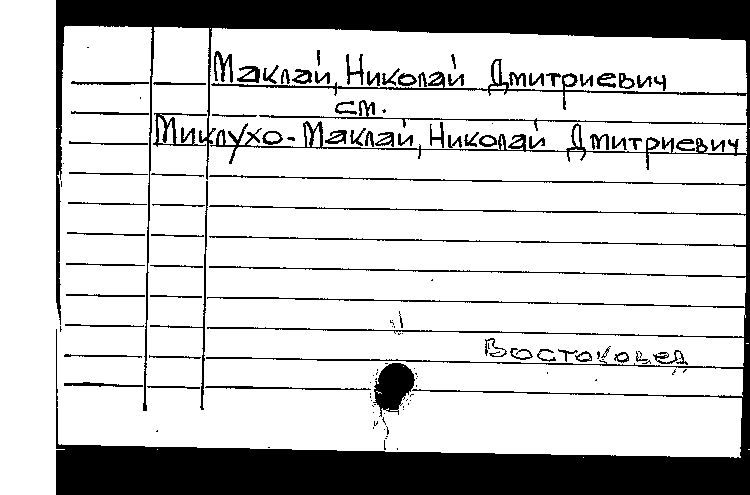 Маклай, Николай Дмитриевич
см.
Миклухо-Маклай, Николай Дмитриевич
Востоковед